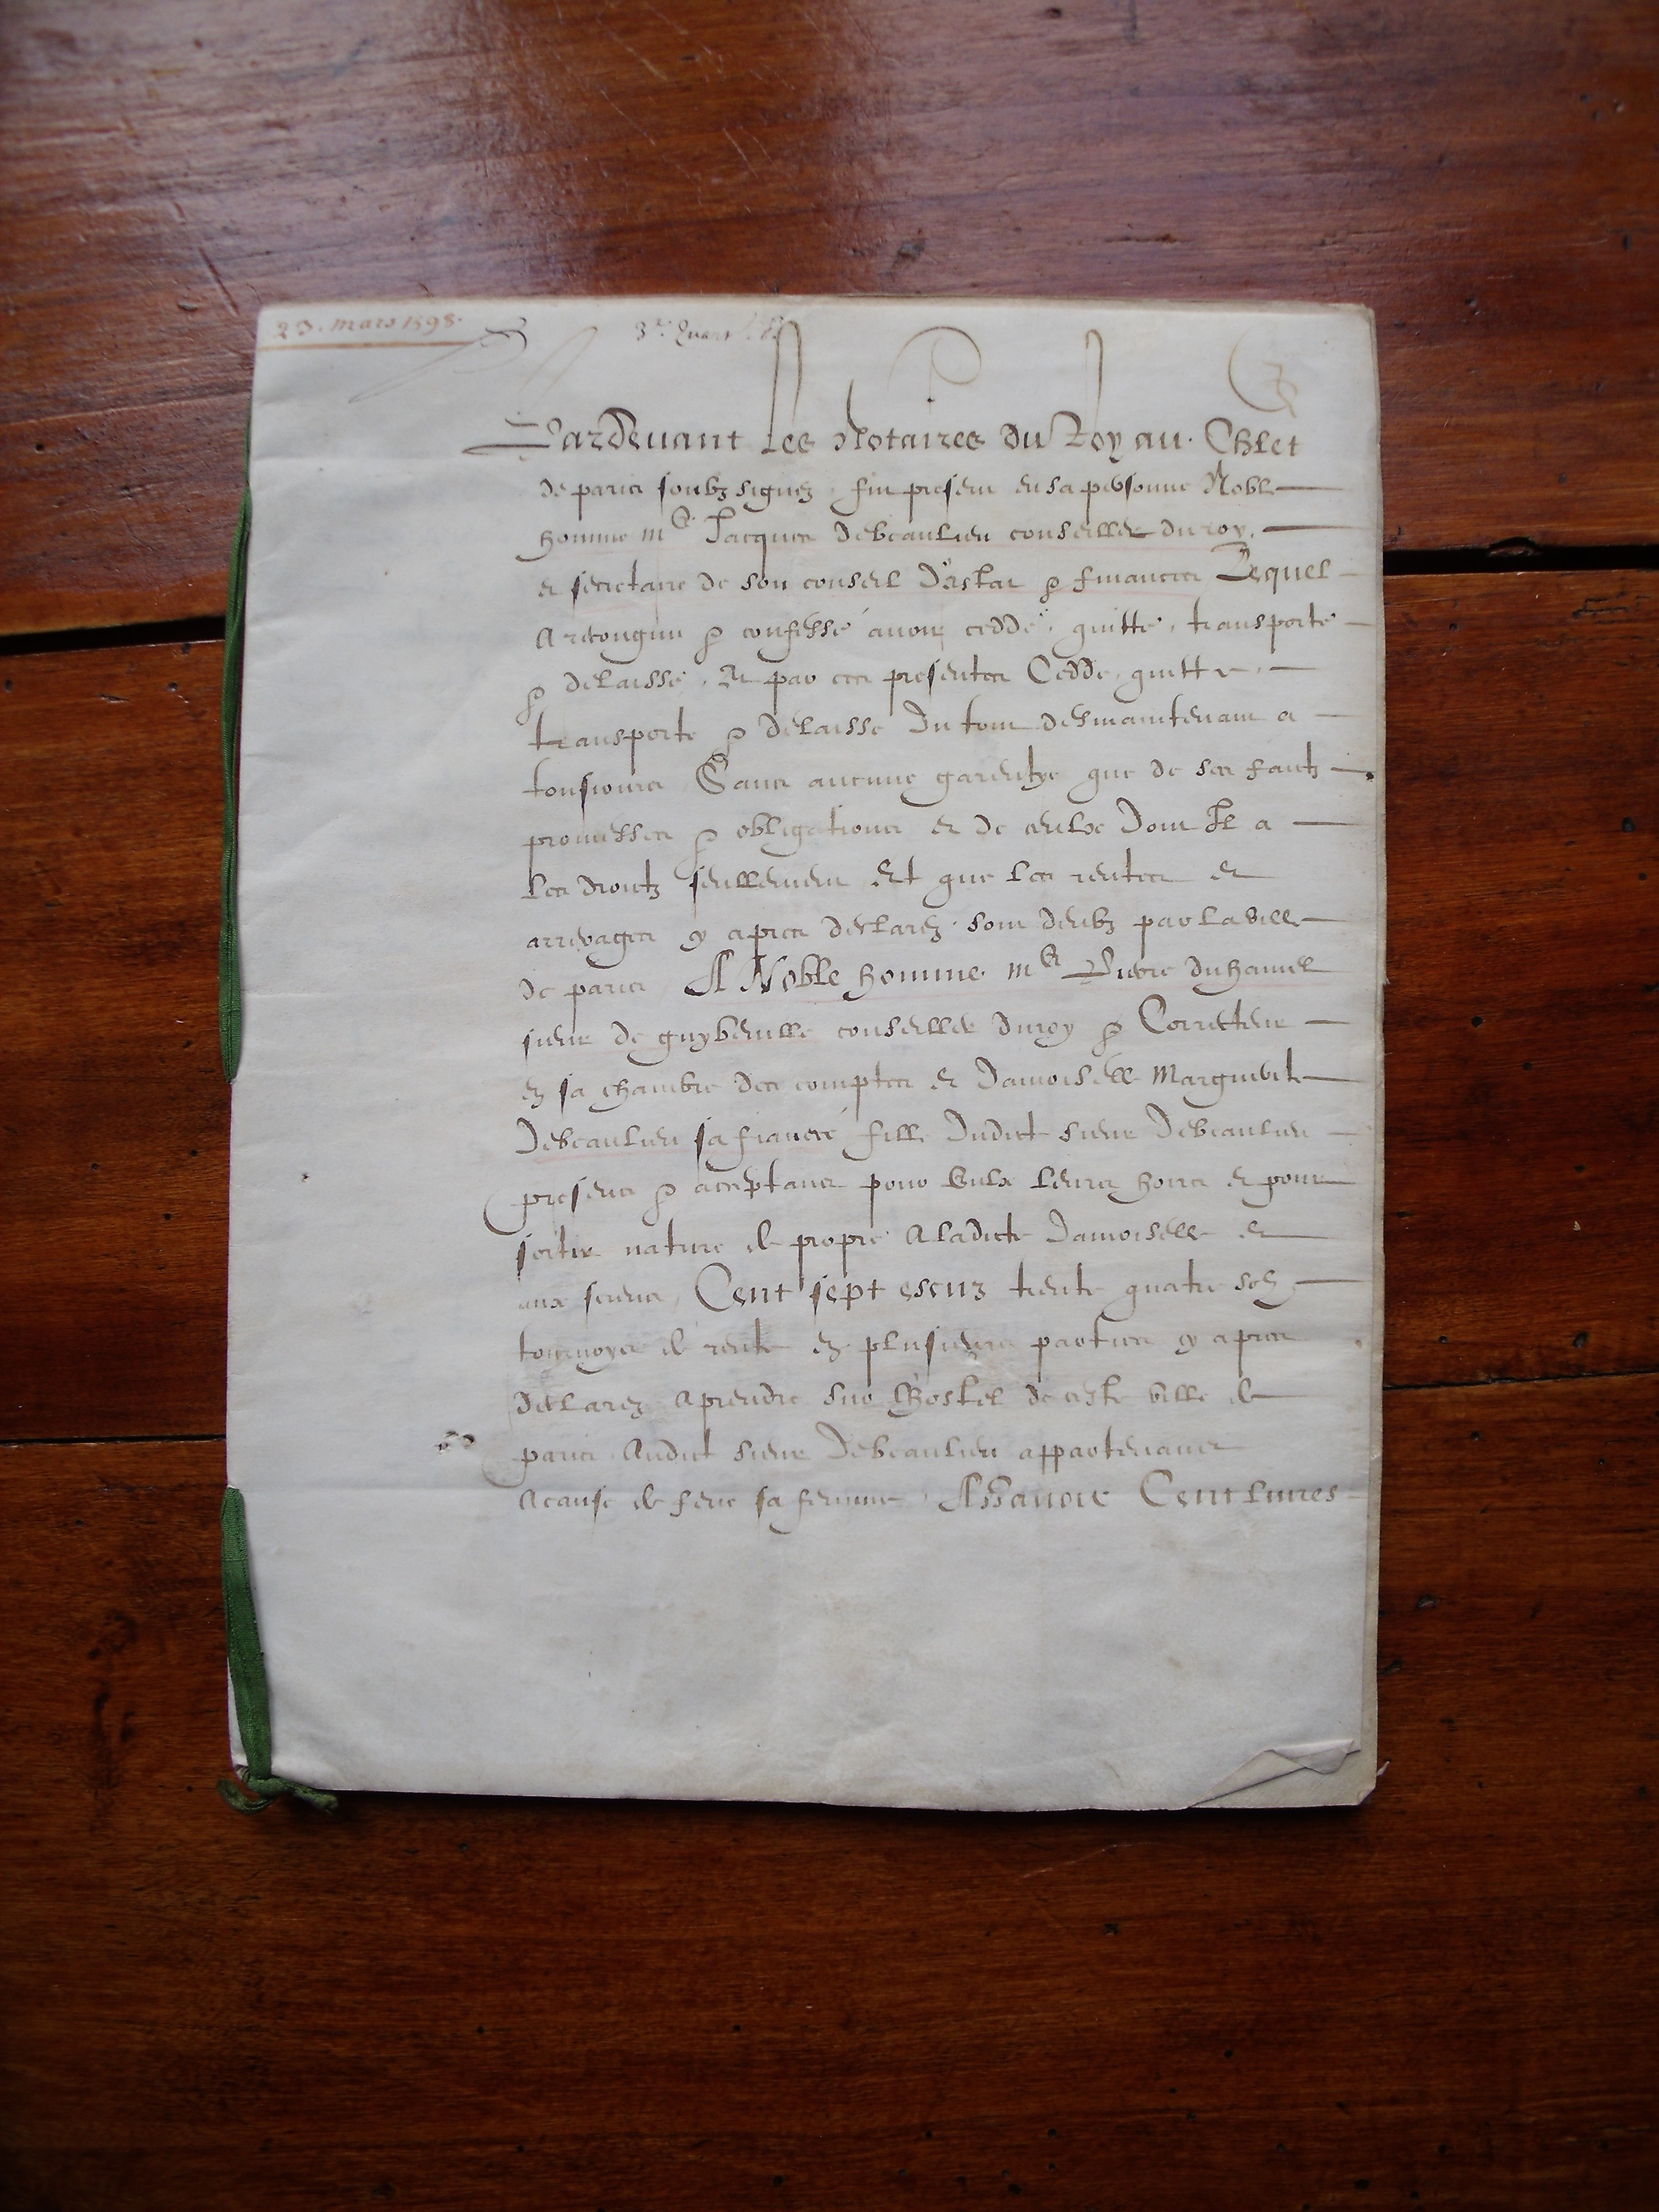 23. Mars 1598.
3e. Quart
Pardevant Les Notaires du Roy au Chlet
de paris soubz signez fut present en sa personne Noble
homme me Jacques debeaulieu conseiller du roy
et secretaire de son conseil destat & finances Lequel
A recongnu & confessé avoir ceddé, quitté, transporté
& delaissé, Et par ces presentes Cedde, quitte,
transporte & delaisse du tout desmaintenant a
tousiours Sans aucune garentye que de ses faictz
promesses & obligations et de ceulx dont Il a
les droictz seullement Et que les rentes et
arrerages cy apres declarez sont deubz par la ville
de paris A Noble homme me Pierre duhamel
sieur de guyberville conseiller du roy & Correcteur
en sa chambre des comptes et damoiselle Marguerite
debeaulieu sa fiancée fille dudict sieur debeaulieu
presens & acceptans pour eulx leurs hoirs et pour
sortir nature de propre a ladicte damoiselle et
aux siens, Cent sept escuz trente quatre solz
tournoys de rente en plusieurs parties cy apres
declarez a prendre sur lhostel de ceste ville de
paris Audict sieur debeaulieu appartenans
a cause de feue sa femme, Assavoir Cent livres